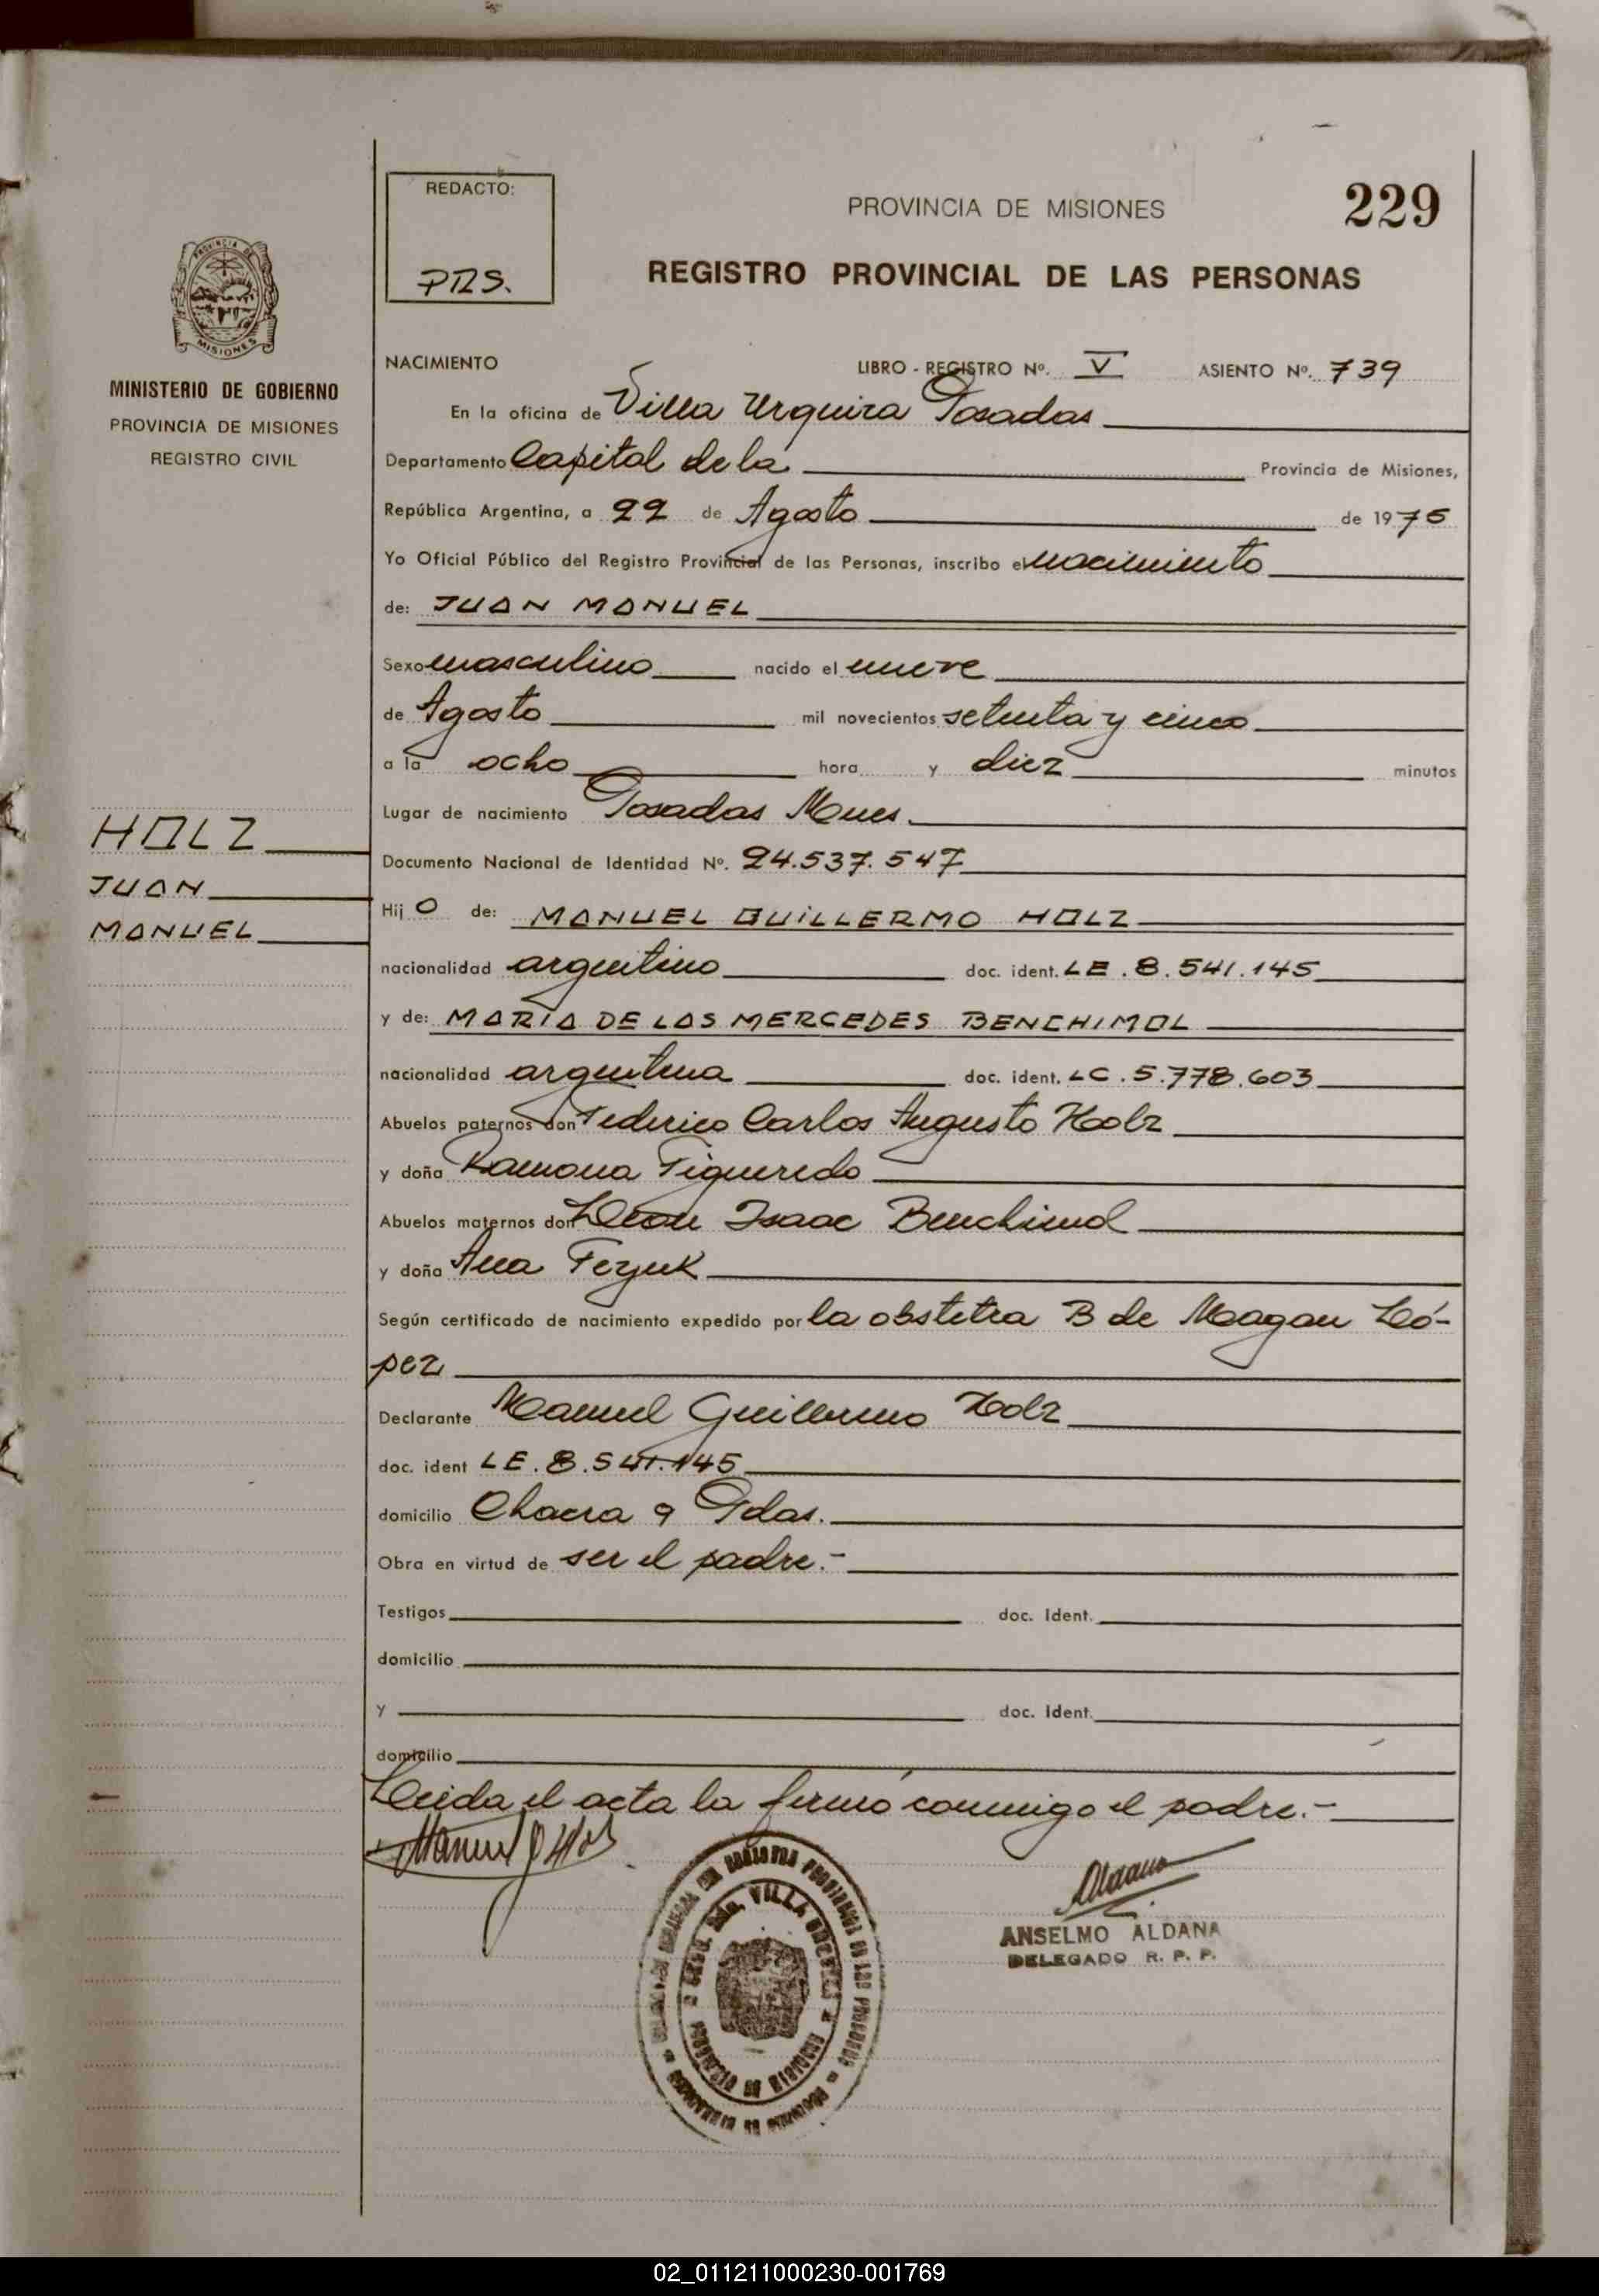 229
REDACTO:
PROVINCIA DE MISIONES
REGISTRO PROVINCIAL DE LAS PERSONAS
PROVINCIA DE
MISIONES
MINISTERIO DE GOBIERNO
PROVINCIA DE MISIONES
REGISTRO CIVIL
NACIMIENTO LIBRO - REGISTRO Nº. V ASIENTO Nº. 739
En la oficina de Villa Urquiza Posadas
Departamento Capital de la Provincia de Misiones,
República Argentina, a 22 de Agosto de 1975
Yo Oficial Público del Registro Provincial de las Personas, inscribo el nacimiento
de: JUAN MANUEL
Sexo masculino nacido el nueve
de Agosto mil novecientos setenta y cinco
a la ocho hora y diez minutos
Lugar de nacimiento Posadas Mnes.
Documento Nacional de Identidad Nº. 24.537.547
HOLZ
JUAN
MANUEL
Hij o de: MANUEL GUILLERMO HOLZ
nacionalidad argentino doc. ident. LE. 8.541.145
y de: MARIA DE LAS MERCEDES BENCHIMOL
nacionalidad argentina doc. ident. LC. 5.778.603
Abuelos paternos don Federico Carlos Augusto Holz
y doña Ramona Figueredo
Abuelos maternos don Leon Isaac Benchimol
y doña Ana
Según certificado de nacimiento expedido por la obstetra B de Magan Ló-
pez
Declarante Manuel Guillermo Holz
doc. ident LE. 8.541.145
domicilio Chacra 9 Pdas.
Obra en virtud de ser el padre.-
Testigos doc. Ident.
domicilio
y doc. Ident.
domicilio
Leida el acta la firmó conmigo el padre.-
ANSELMO ALDANA
DELEGADO R. P. P.
PROVINCIA DE MISIONES
02_011211000230-001769